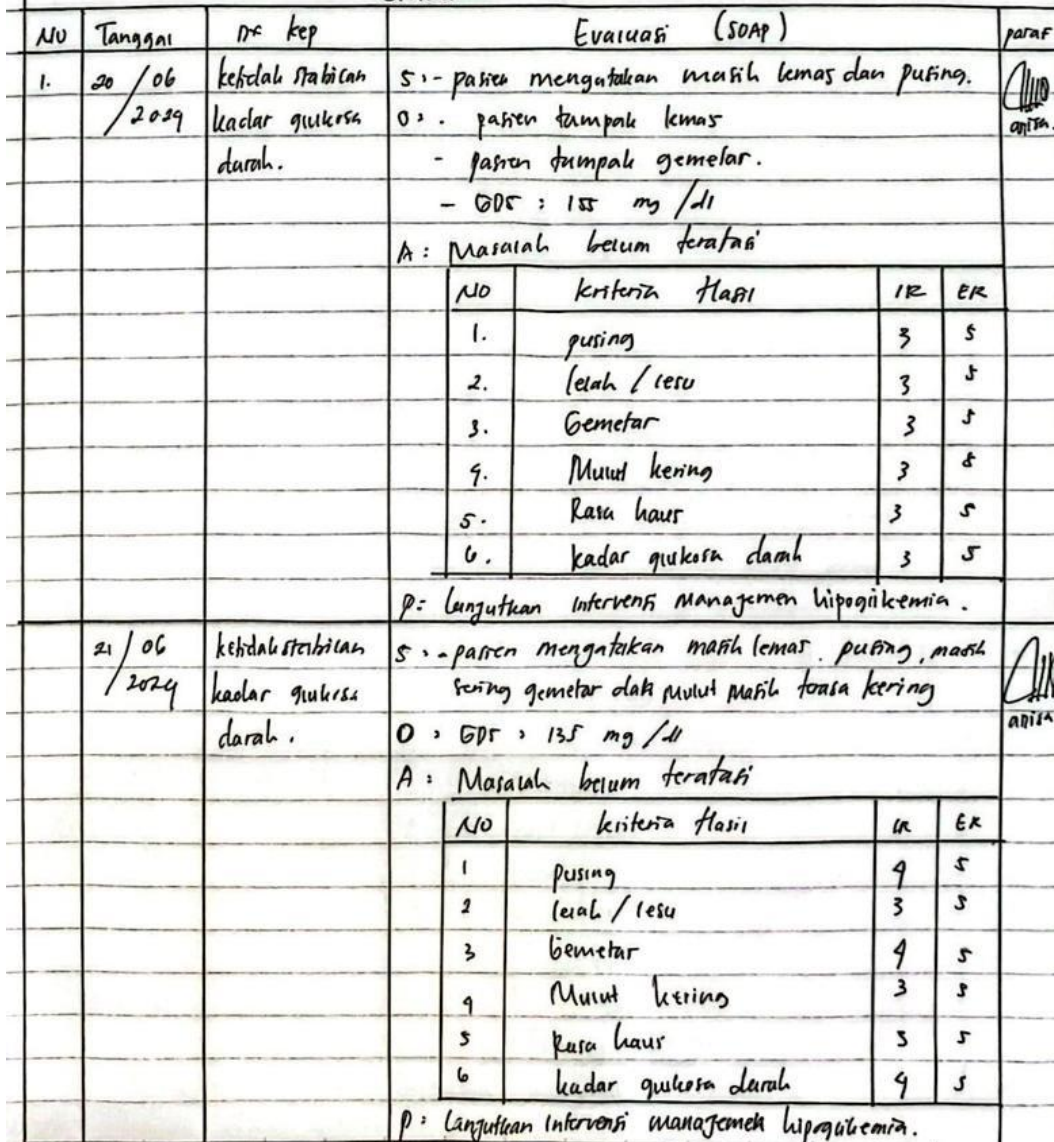 No Tanggal Dx kep Evaluasi (SOAP) paraf
1. 20/06 ketidak stabilan S : - pasien mengatakan masih lemas dan pusing.
2024 kadar glukosa O : . pasien tampak lemas
anisa.
darah. - pasien tampak gemetar.
- GDS : 155 mg/dl
A : Masalah belum teratasi
NO kriteria Hasil IR ER
1. pusing 3 5
2. lelah / lesu 3 5
3. Gemetar 3 5
4. Mulut kering 3 5
5. Rasa haus 3 5
6. kadar glukosa darah 3 5
P : lanjutkan intervensi Manajemen hipoglikemia.
21/06 ketidakstabilan S : - pasien mengatakan masih lemas, pusing, masih
2024 kadar glukosa sering gemetar dan mulut masih terasa kering
anisa
darah. O : GDS : 135 mg/dl
A : Masalah belum teratasi
NO kriteria Hasil IR ER
1 Pusing 4 5
2 lelah / lesu 3 5
3 Gemetar 4 5
4 Mulut kering 3 5
5 Rasa haus 5 5
6 kadar glukosa darah 4 5
P : lanjutkan intervensi manajemen hipoglikemia.